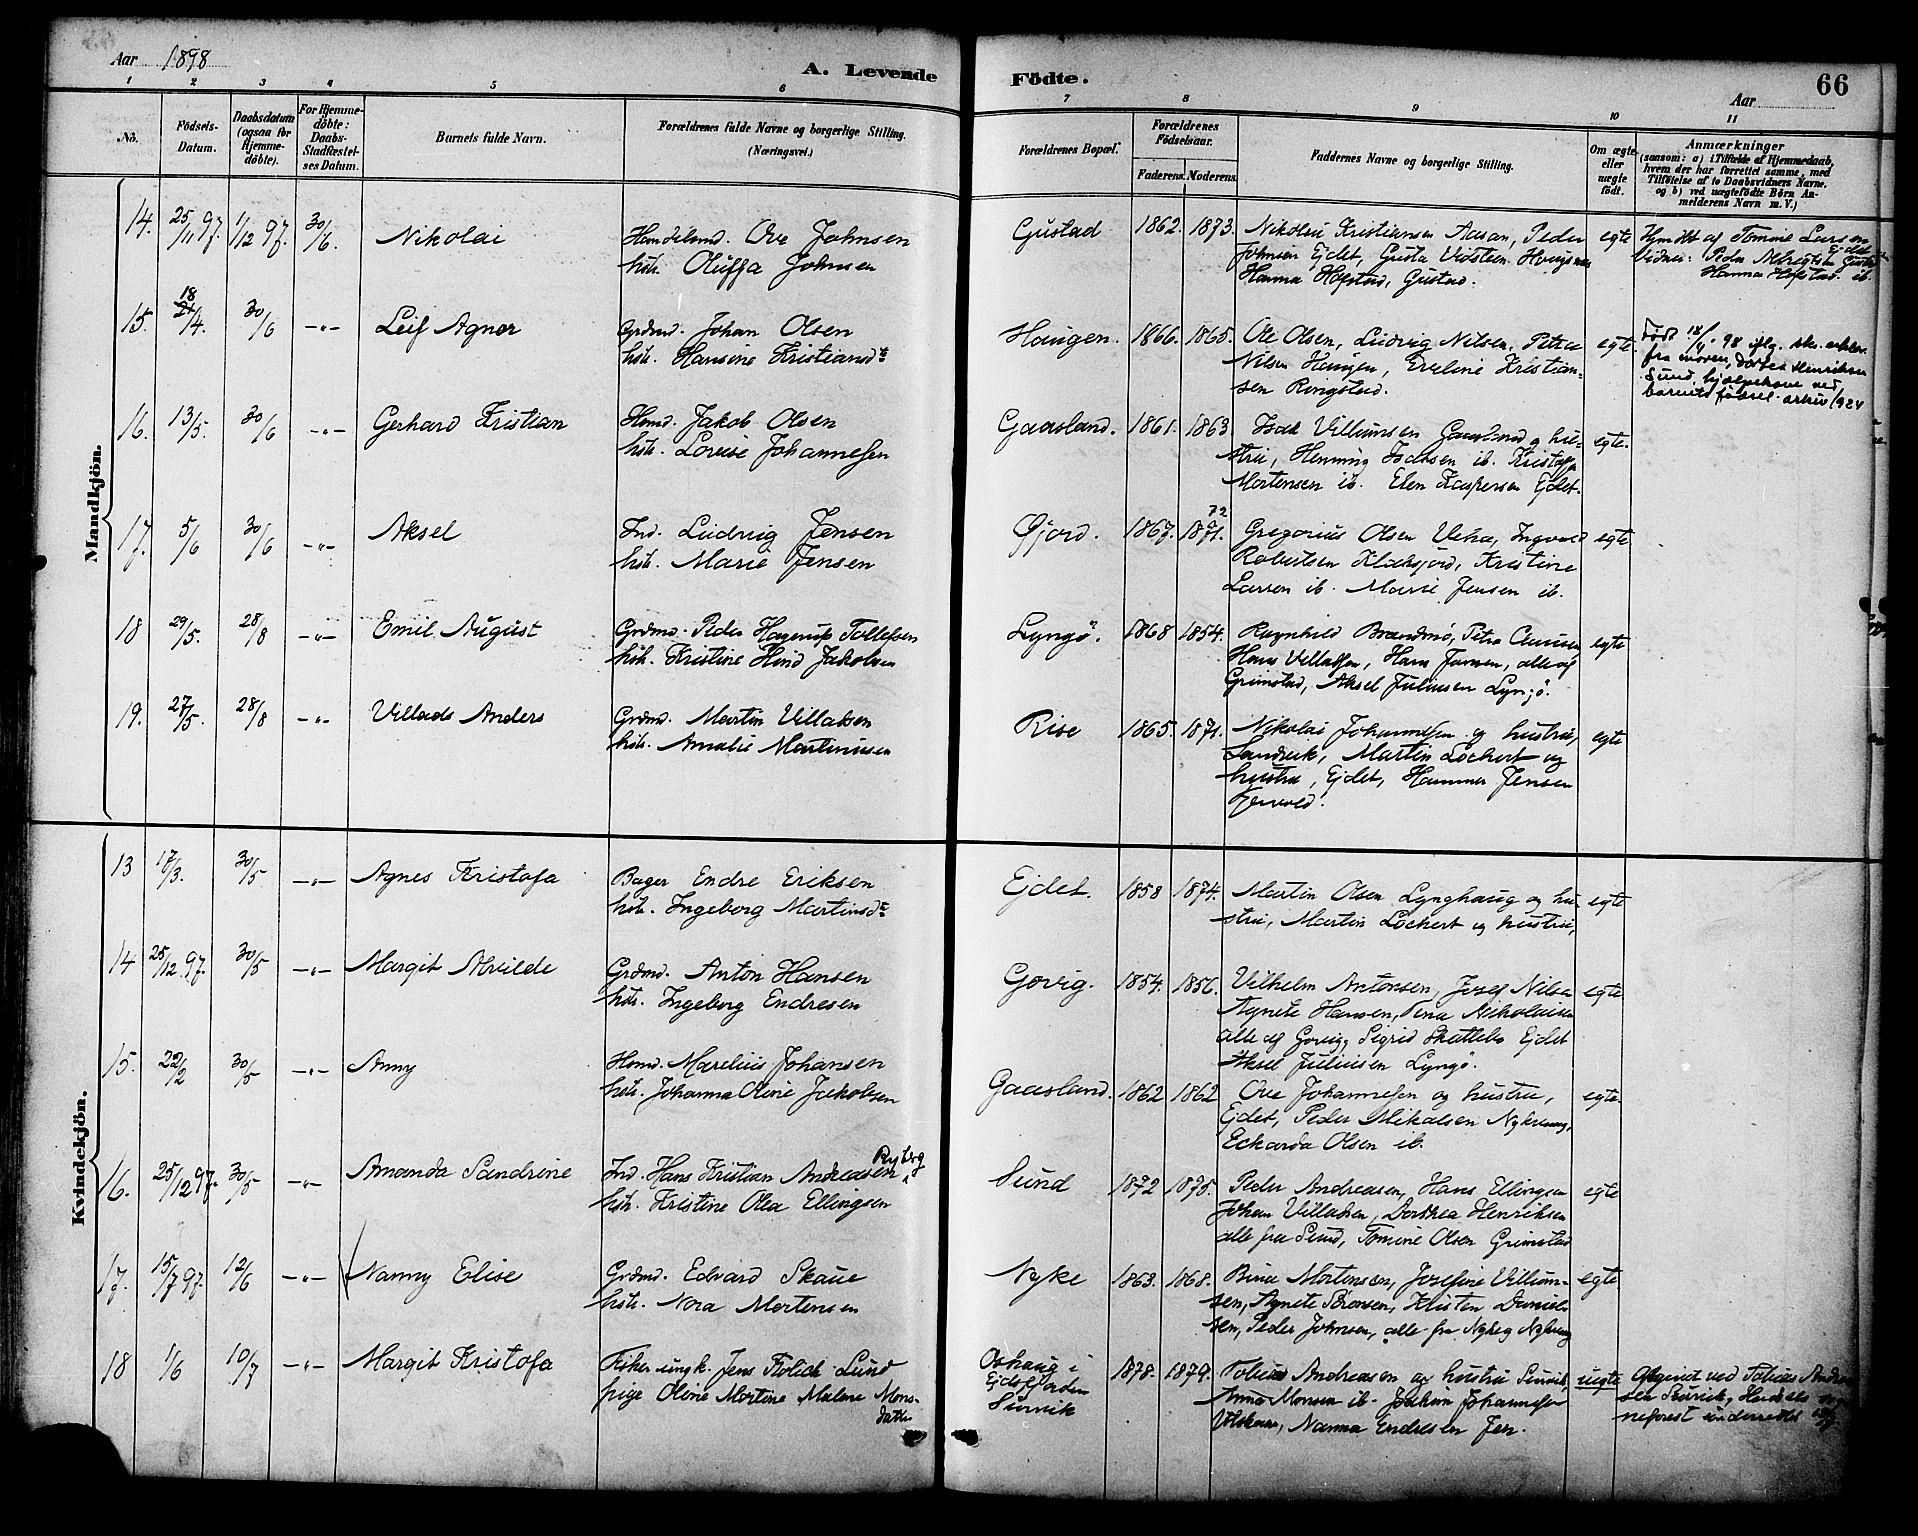 Aar 1898
A. Levende
Födte.
66
Aar
1 2 3 4 5 6 7 8 9 10 11
No.
Födsels-
Datum.
Daabsdatum
(ogsaa for
Hjemme-
döbte).
For Hjemme-
döbte:
Daabs-
Stadfæstel-
ses Datum.
Barnets fulde Navn.
Forældrenes fulde Navne og borgerlige Stilling.
(Næringsvei.)
Forældrenes Bopæl.
Forældrenes
Födselsaar.
Faderens. Moderens.
Faddernes Navne og borgerlige Stilling.
Om ægte
eller
uægte
født.
Anmærkninger
(saasom: a) i Tilfælde af Hjemmedaab,
hvem der har forrettet samme, med
Tilføielse af to Daabsvidners Navne.
og b) ved uægtefödte Börn An-
melderens Navn m. V.)
Mandkjön.
14. 25/11 97. 1/12 97. 30/6. Nikolai
Handelsmd. Ove Johnsen
hstr. Oluffa Johnsen
Gustad 1862. 1873.
Nikolai Kristiansen Aasan, Peder
Johnsen Ejdet, Gusta Vidstein
Hanna Hofstad, Gustad.
egte
Hjmdbt af Tomine Larsen
Ejdet
Vidner: Peder
Hanna Hofstad ib.
15. 18 21/4. 30/6 -"- Leif Agner
Grdmd. Johan Olsen
hstr. Hansine Kristiansdtr
Haugen. 1866. 1865.
Ole Olsen, Ludvig Nilsen, Petra
Nilsen Haugen, Eveline Kristian-
sen Ringstad.
egte.
Født 18/4-98 iflg. skr. erklær.
fra moren, Dortea Henriksen
Sund, hjælpekone ved
barnets fødsel. arkiv 1924
16. 13/5. 30/6 -"- Gerhard Kristian
Hsmd. Jakob Olsen
hstr. Lovise Johannesen
Gaasland. 1861. 1863
Isak Villumsen Gaasland og hu-
stru, Henning Isaksen ib. Kristofa
Mortensen ib. Elen Kaspersen Ejdet.
egte.
17. 5/6 30/6 -"- Aksel
Ind. Ludvig Jensen
hstr. Marie Jensen
Gjord. 1867. 1871. 72
Gregorius Olsen Ingvald
Robertsen Klaksjord, Kristine
Larsen ib. Marie Jensen ib.
egte
18 29/5. 28/8 -"- Emil August
Grdmd. Peder Hagerup Tollefsen
hstr. Kristine Hind Jakobsen
Lyngö. 1868 1854.
Ragnhild Brandmo, Petra
Hans Villadsen, Hans Jensen, alle af
Grimstad, Aksel Juliusen Lyngö.
egte
19. 27/5. 28/8 -"- Villads Anders
Grdmd. Martin Villadsen
hstr. Amalie Martinusen
Rise 1865. 1871.
Nikolai Johannesen og hustru,
Sandvik, Martin Lockert og
hustru, Ejdet, Hammer Jensen
egte
Kvindekjön.
13 17/3. 30/5 -"- Agnes Kristofa
Bager Endre Eriksen
hstr. Ingeborg Martinsdtr
Ejdet. 1858 1874.
Martin Olsen Lynghaug og hu-
stru, Martin Lockert og hustru,
egte
14 25/12 97. 30/5 -"- Margit Alvilde
Grdmd. Anton Hansen
hstr. Ingeborg Endresen
Govig. 1854. 1856.
Vilhelm Antonsen, Josef Nilsen
Agnete Hansen, Tina Nikolaisen
alle af Govig, Sigrid Skattebo Ejdet
Aksel Juliusen Lyngö.
egte
15. 22/2 30/5 -"- Anny
Hsmd. Marelius Johansen
hstr. Johanna Oline Jakobsen
Gaasland. 1862 1862
Ove Johannesen og hustru,
Ejdet, Peder Mikalsen Nykvaag,
Eckarda Olsen ib.
egte.
16. 25/12 97. 30/5 -"- Amanda Sandrine
Ind. Hans Kristian Andreasen Ryberg
hstr. Kristine Olea Ellingsen
Sund 1872 1875.
Peder Andreasen, Hans Ellingsen
Johan Villadsen, Dorthea Henriksen
alle fra Sund, Tomine Olsen Grimstad
egte
17. 15/7 97. 12/6 -"- Nanny Elise
Grdmd. Edvard Skaue
hstr. Nora Mortensen
Nyke 1863. 1868.
Bina Mortensen, Josefine Villum-
sen, Agnete Sörensen, Kristen Daniel-
sen, Peder Johnsen, alle fra Nyke og Nykvaag
egte
18 1/6 10/7 -"- Margit Kristofa
Fisker ungk. Jens Frolich Lund
pige Oline Martine Malene Mons-
datter
Oshaug i
Ejdsfjorden
Survik
1878. 1879.
Tobias Andreasen og hustru Survik,
Anna Monsen ib. Joakim Johannesen
Nanna Endresen Jen.
uegte
Opgivet ved Tobias Andrea-
sen Survik,
underrettet